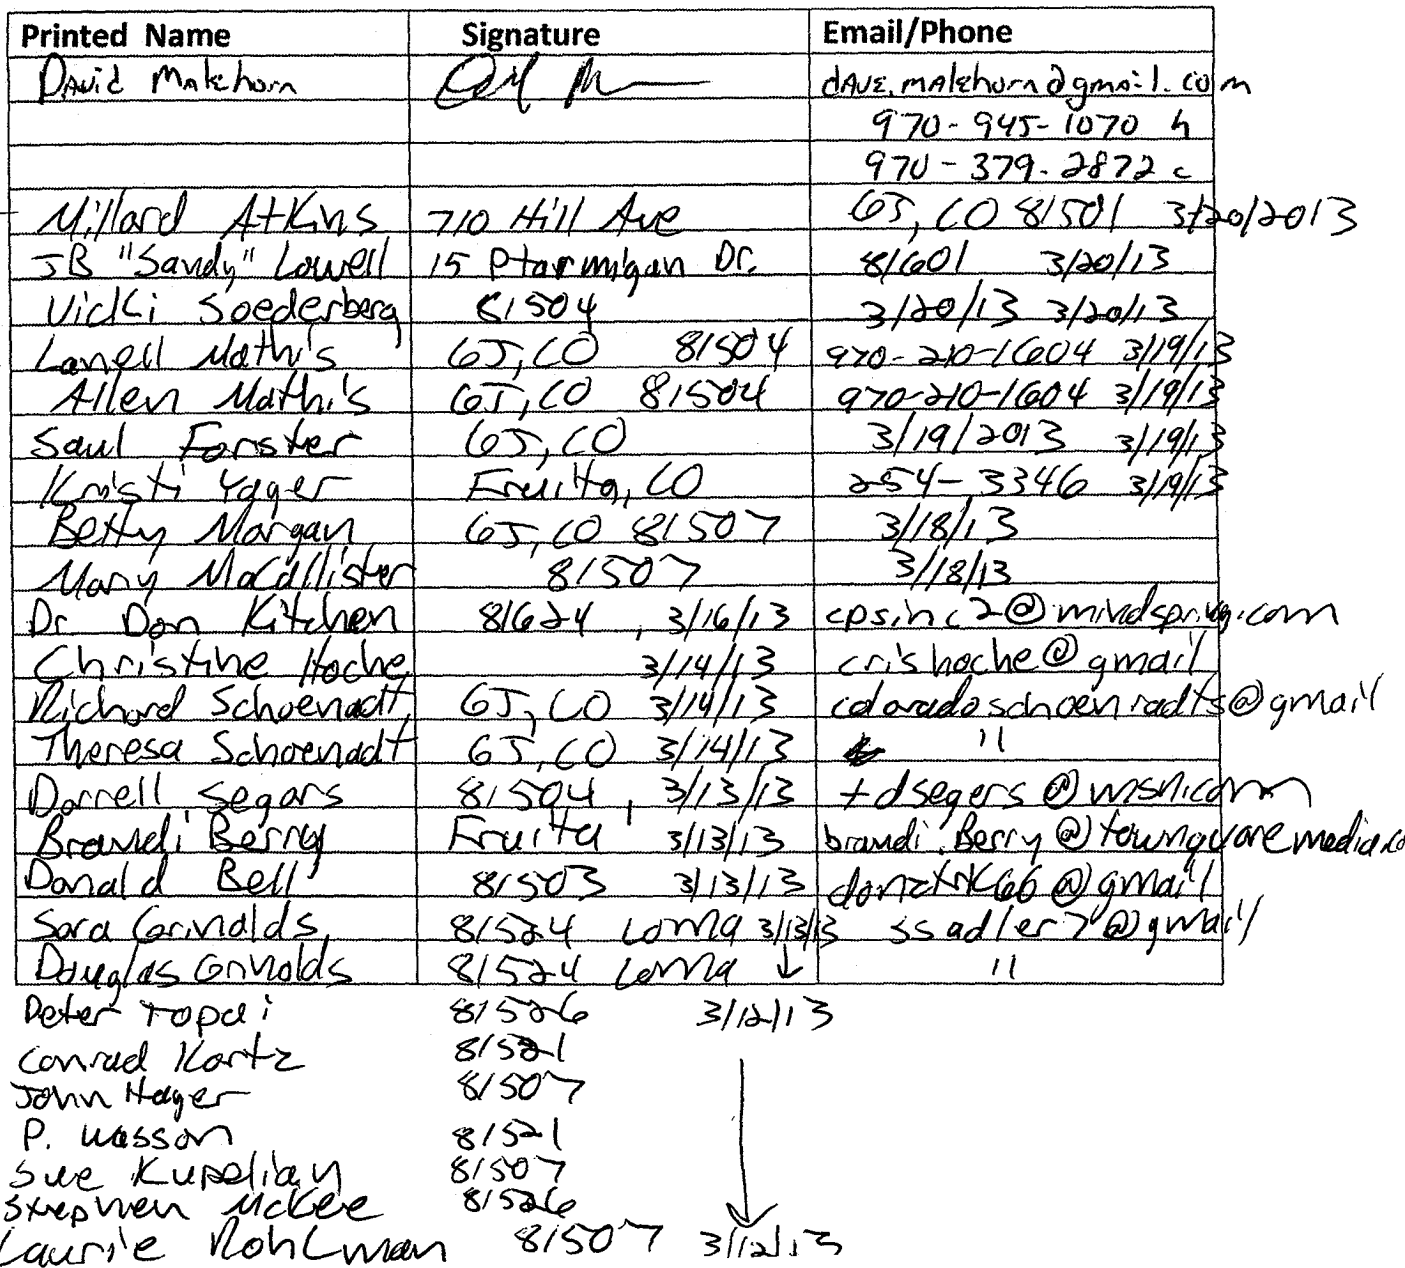 Printed Name Signature Email/Phone
David Malehorn dave.malehorn@gmail.com
970-945-1070 h
970-379-2872 c
Millard Atkins 710 Hill Ave GJ, CO 81501 3/20/2013
JB "Sandy" Lowell 15 Ptarmigan Dr. 81601 3/20/13
Vicki Soederberg 81504 3/20/13 3/20/13
Lanell Mathis GJ, CO 81504 970-210-1604 3/19/13
Allen Mathis GJ, CO 81504 970-210-1604 3/19/13
Saul Forster GJ, CO 3/19/2013 3/19/13
Kristi Yager Fruita, CO 254-3346 3/19/13
Betty Morgan GJ, CO 81507 3/18/13
Mary McCallister 81507 3/18/13
Dr. Don Kitchen 81624, 3/16/13 cpsinc2@mindspring.com
Christine Hoche 3/14/13 crishoche@gmail
Richard Schoenadt, GJ, CO 3/14/13 coloradoschoenradts@gmail
Theresa Schoenadt GJ, CO 3/14/13 "
Darrell Segars 81504, 3/13/13 tdsegers@msn.com
Brandi Berry Fruita 3/13/13 brandi.Berry@townquaremedia.co
Donald Bell 81503 3/13/13 @gmail
Sara Grinolds 81524 Loma 3/13/13 ssadler7@gmail
Douglas Grinolds 81524 Loma ↓ "
Peter Topai 81526 3/12/13
Conrad Kortz 81521
John Hager 81507
P. Wasson 81521
Sue Kupelian 81507
Stephen McKee 81526
Laurie Rohlman 81507 3/12/13